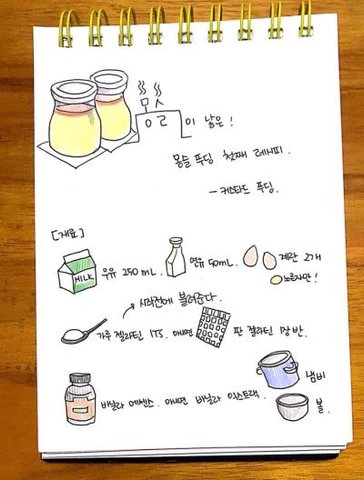 이 낳은!
몽슬 푸딩 첫째 레시피.
- 커스타드 푸딩.
[재료]
MILK 우유 250mL. 연유 50mL. 계란 2개
노른자만!
시작전에 불려준다.
가루 젤라틴 1TS. 아니면 판 젤라틴 장반.
냄비
바닐라 에센스. 아니면 바닐라 익스트랙.
볼.